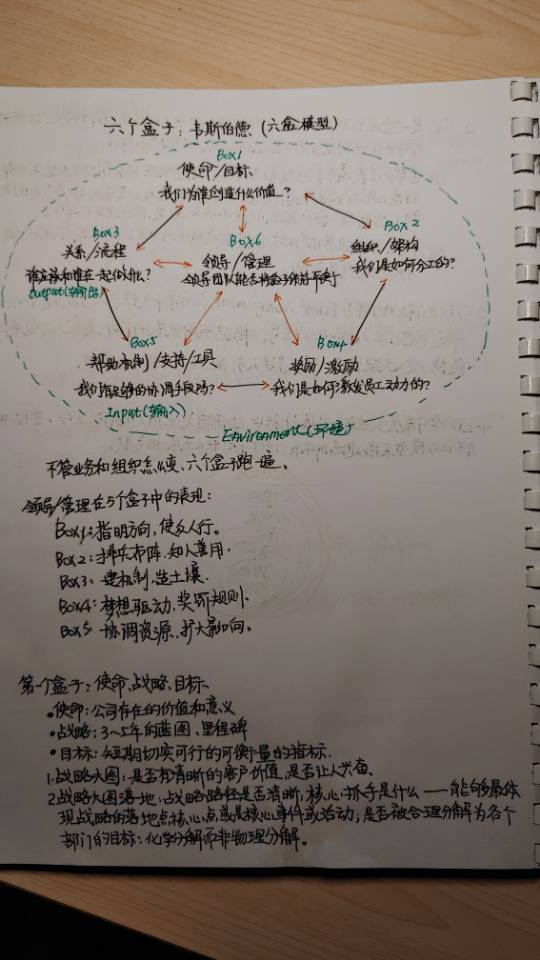 六个盒子：韦斯伯德（六盒模型）
Box1
使命/目标
我们为谁创造什么价值？
Box3
关系/流程
谁应该和谁在一起做什么？
Output(输出)
Box6
领导/管理
领导团队能否将盒子保持平衡？
Box2
组织/架构
我们是如何分工的？
Box5
帮助机制/支持/工具
我们有足够的协调手段吗？
Input(输入)
Box4
奖励/激励
我们是如何激发员工动力的？
Environment(环境)
不管业务和组织怎么变、六个盒子跑一遍、
领导/管理在5个盒子中的表现：
Box1：指明方向，使众人行。
Box2：排兵布阵、知人善用.
Box3：建机制、造土壤.
Box4：梦想驱动、奖罚规则.
Box5：协调资源、扩大影响。
第一个盒子：使命、战略、目标、
•使命：公司存在的价值和意义
•战略：3~5年的蓝图、里程碑
•目标：短期切实可行的可衡量的指标.
1.战略大图：是否有清晰的客户价值、是否让人兴奋、
2.战略大图落地：战略路径是否清晰，核心抓手是什么——能够最体
现战略的落地点核心点或是核心事件或活动；是否被合理分解为各个
部门的目标：化学分解而非物理分解。